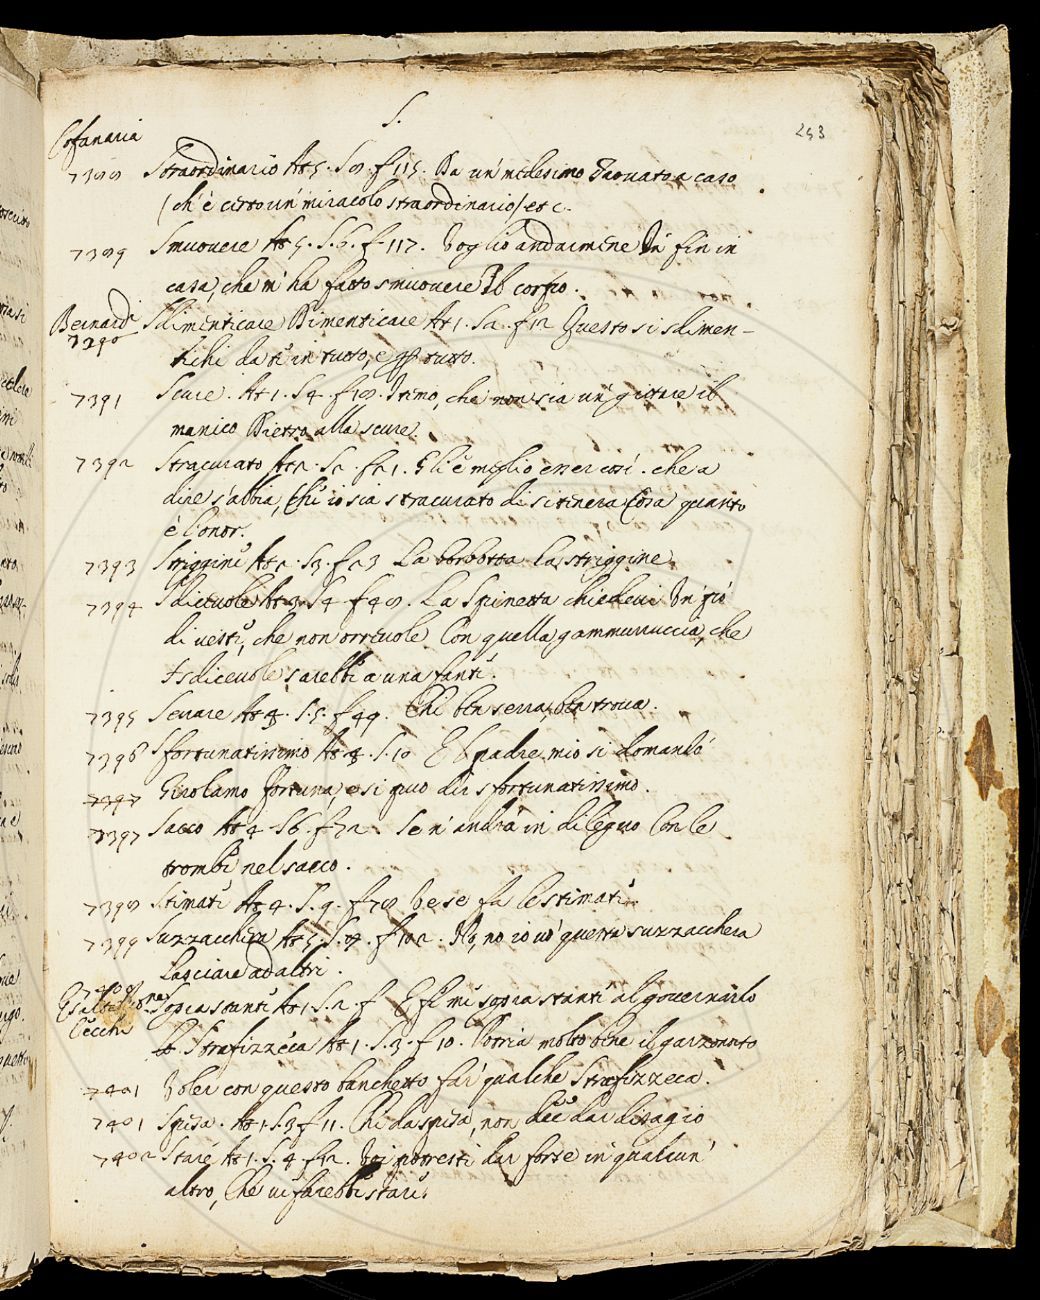 S.
253
Cofanaria
7388 Straordinario At 5. S 8. f. 115. Da un medesimo trovato a caso
(ch'è certo un miracolo straordinario) etc.
7389 Smuovere At 5. S. 6. f. 117. Voglio andarmene in fin in
casa, che m'ha fatto smuovere il corpo.
Bernardi
7390 Sdimenticare Dimenticare At 1. S 2. f 12 Questo si sdimen-
tichi da te in tutto, e per tutto.
7391 Scure. At 1. S 4. f 18. Temo, che non sia un gittare il
manico Dietro alla scure.
7392 Stracurato At 2. S 2. f 21. Gli è meglio esser così. che a
dire s'abbia, Che io sia stracurato di si tenera Cosa quanto
è l'onor.
7393 Striggine At 2. S 3. f 23 La borbotta la striggine
7394 Sdicevole At 3. S 4 f 48. La Spinetta chiedevi un po'
di veste, che non orrevole Con quella gammurruccia, che
Isdicevole sarebbe a una fante.
7395 Serrare At 4. S. 5. f 49. Chi ben serra, ben trova.
7396 Sfortunatissimo At 4. S. 10 E l padre mio si domandò
7397 Girolamo Fortuna, e si può dir sfortunatissimo.
7397 Sacco At 4 S 6. f 72. Se n'andrà in dileguo Con le
trombe nel sacco.
7398 Stimate At 4. S. 9. f 78 Ve se fa le stimate
7399 Suzzacchera At 5. S. 7. f 102. No, no io vo' questa suzzacchera
Lasciare ad altri.
7400
Cecchi Soprastante At 1. S. 2. f E f mi soprastante al governarlo
Strafizzeca At 1. S. 3. f 10. Potria molto bene il garzonotto
7401 Voler con questo banchetto far qualche strafizzeca.
7401 Spesa. At 1. S. 3 f 11. Chi da spesa, non dee dar disagio
7402 Stare At 1. S. 4. f 12. Voi potresti dar forse in qualcun'
altro, Che vi farebbe stare.